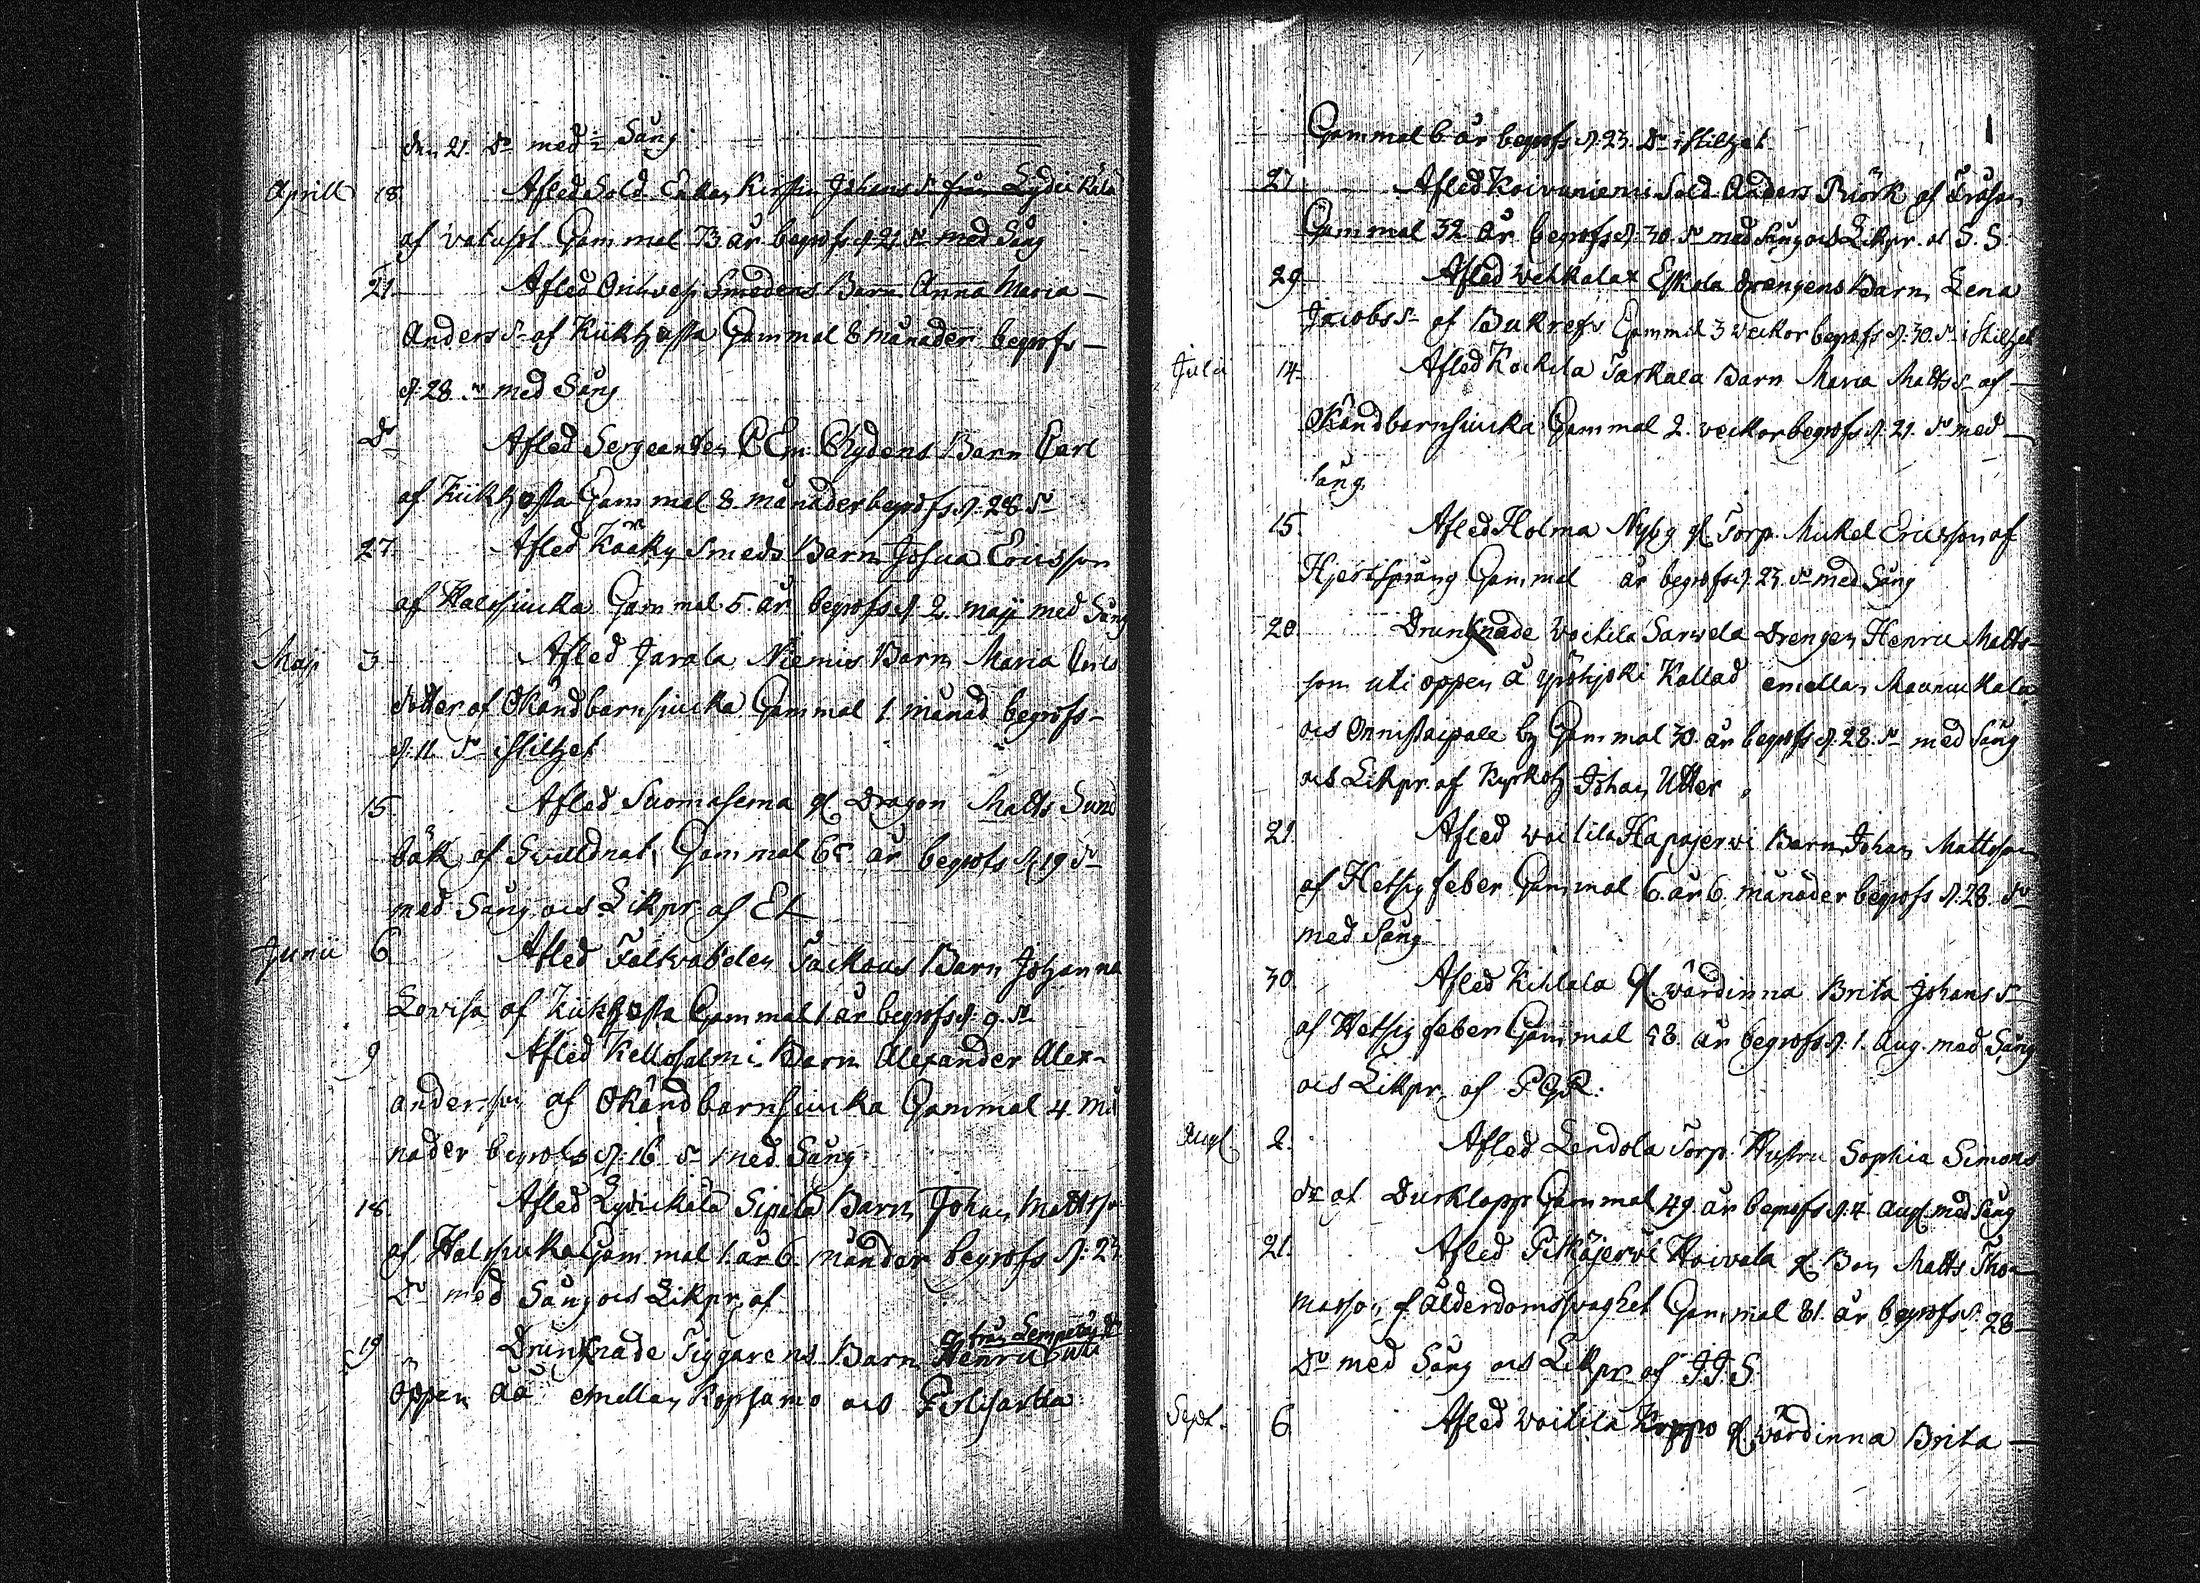 den 21. D:o med Sång
Aprill 18. Afled Sold. Enkan Kirstin Johans d:r från Lydickälä
af vatusot Gammal 73 år begrofs d. 21 d:o med Sång
21. Afled Smedens Barn Anna Maria
Anders d:r af Kikhosta Gammal 8 månader begrofs
d: 28 d:o med Sång
D:o Afled Sergeanten C Em: Chydens Barn Carl
af Kikhosta Gammal 8. månader begrofs d: 28 d:o
27. Afled Smeds Barn Josua Ericsson
af Halssiucka Gammal 5. år begrofs d. 2. maji med Sång
Maji 3 Afled Jarala Niemis Barn Maria
dotter af Okänd barnsiucka Gammal 1. månad begrofs
d: 11 d:o i stillhet
15. Afled Suomasema gl. Dragon Matts Sund
bäk af Gammal år begrofs d. 19 d:o
med Sång och Likpr. af EL
Junii 6 Afled Fältväbelen Tackous Barn Johanna
Lovisa af Kikhosta Gammal 1. år begrofs d. 9. d:o
9 Afled Kellosalmi Barn Alexander Alex-
andersson af Okänd barnsiucka Gammal 4. må
nader begrofs d: 16 d:o med Sång
18. Afled Lydickälä Sipilä Barn Johan Mattss:
af Halssiucka Gammal 1. år 6. månader begrofs d: 23.
D:o med Sång och Likpr. af
från Lempälä
19 Drunknade Tiggarens Barn Henric uti
öppen åå emellan Kopsamo och Polisartla
Gammal 6 år begrofs d. 23. D:o i stillhet
27 Afled Koivuniemi Sold. Anders Biörk af Fråssan
Gammal 32 år begrofs d. 30. d:o med Sång och Likpr. af S. S.
29 Afled Wehkalax Eskola Drengens Barn Lena
Jacobs d:r af Bukref Gammal 3 veckor begrofs d: 30. d:o i Stillhet
Julii 14. Afled Kockila Tarkala Barn Maria Matts d:r af
Okändbarnsiucka Gammal 2. veckor begrofs d. 21. d:o med
sång.
15. Afled Holma Nybg gl. Torp. Mickel Ericsson af
Hjertsprång Gammal år begrofs d. 23. d:o med Sång
20. Drunknade Woitila Sarvela Drengen Henric Matts-
son uti oppen å Ypöhjoki Kallad emellan Maunukala
och Onnistaipale by Gammal 30. år begrofs d. 28. d:o med Sång
och Likpr. af Kyrkoh. Johan Utter
21. Afled Woitila Hapajervi Barn Johan Mattsson
af Hetsig feber Gammal 6. år 6. månader begrofs d. 28. d:o
med Sång
30. Afled Kihlala gl. wärdinna Brita Johans d:r
af Hetsig feber Gammal 58. år begrofs d. 1. Aug. med Sång
och Likpr. af
Aug. 2. Afled Lendola Torp. Hustru Sophia Simons
dr af Durklopp Gammal 49. år begrofs d. 4 Aug. med Sång
21. Afled Pitkäjervi Hoivala gl. Bon. Matts Tho-
masson af ålderdomsvaghet Gammal 81. år begrofs d. 28
D:o med Sång och Likpr. af J.J.S
Sept. 6 Afled Woitila Koppo gl. wärdinna Brita